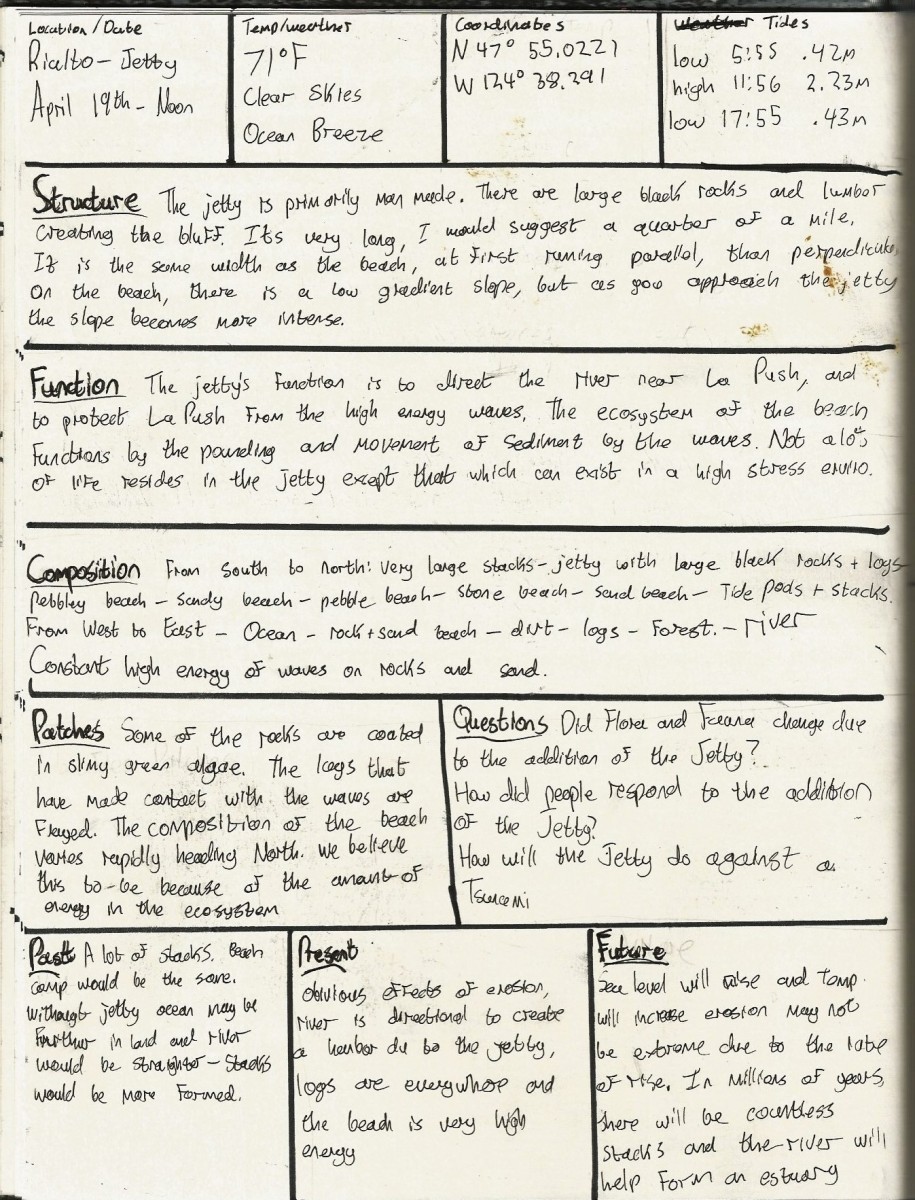 Location/Date
Rialto - Jetty
April 19th - Noon
Temp/weather
71°F
Clear Skies
Ocean Breeze
Coordinates
N 47° 55.0221
W 124° 38.291
weather Tides
low 5:55 .42m
high 11:56 2.23m
low 17:55 .43m
Structure The jetty is primarily man made. There are large black rocks and lumbor
Creating the bluff. Its very long, I would suggest a quarter of a mile.
It is the same width as the beach, at first runing parallel, than perpendicular
On the beach, there is a low gradient slope, but as you approach the jetty
the slope becomes more intense.
Function The jetty's function is to direct the river near La Push, and
to protect La Push From the high energy waves. The ecosystem of the beach
Functions by the pounding and movement of sediment by the waves. Not a lot
of life resides in the jetty except that which can exist in a high stress enviro.
Composition From south to north: very large stacks - jetty with large black rocks + logs
pebbley beach - sandy beach - pebble beach - stone beach - sand beach - Tide pods + stacks.
From West to East - Ocean - rock + sand beach - dirt - logs - Forest. - river
Constant high energy of waves on rocks and sand.
Patches Some of the rocks are coated
in slimy green algae. The logs that
have made contact with the waves are
Frayed. The composition of the beach
varies rapidly heading North. we believe
this to-be because of the amount of
energy in the ecosystem
Questions Did Flora and Fauna change due
to the addition of the Jetty?
How did people respond to the addition
of the Jetty?
How will the Jetty do against a
Tsunami
Past A lot of stacks. Beach
comp would be the same.
without jetty ocean may be
Further in land and river
would be straighter - Stacks
would be more Formed.
Present
Obvious effects of erosion,
river is directional to create
a harbor du to the jetty,
logs are everywhere and
the beach is very high
energy
Future
Sea level will rise and Temp.
will increase erosion may not
be extreme due to the rate
of rise. In millions of years,
there will be countless
stacks and the river will
help form an estuary